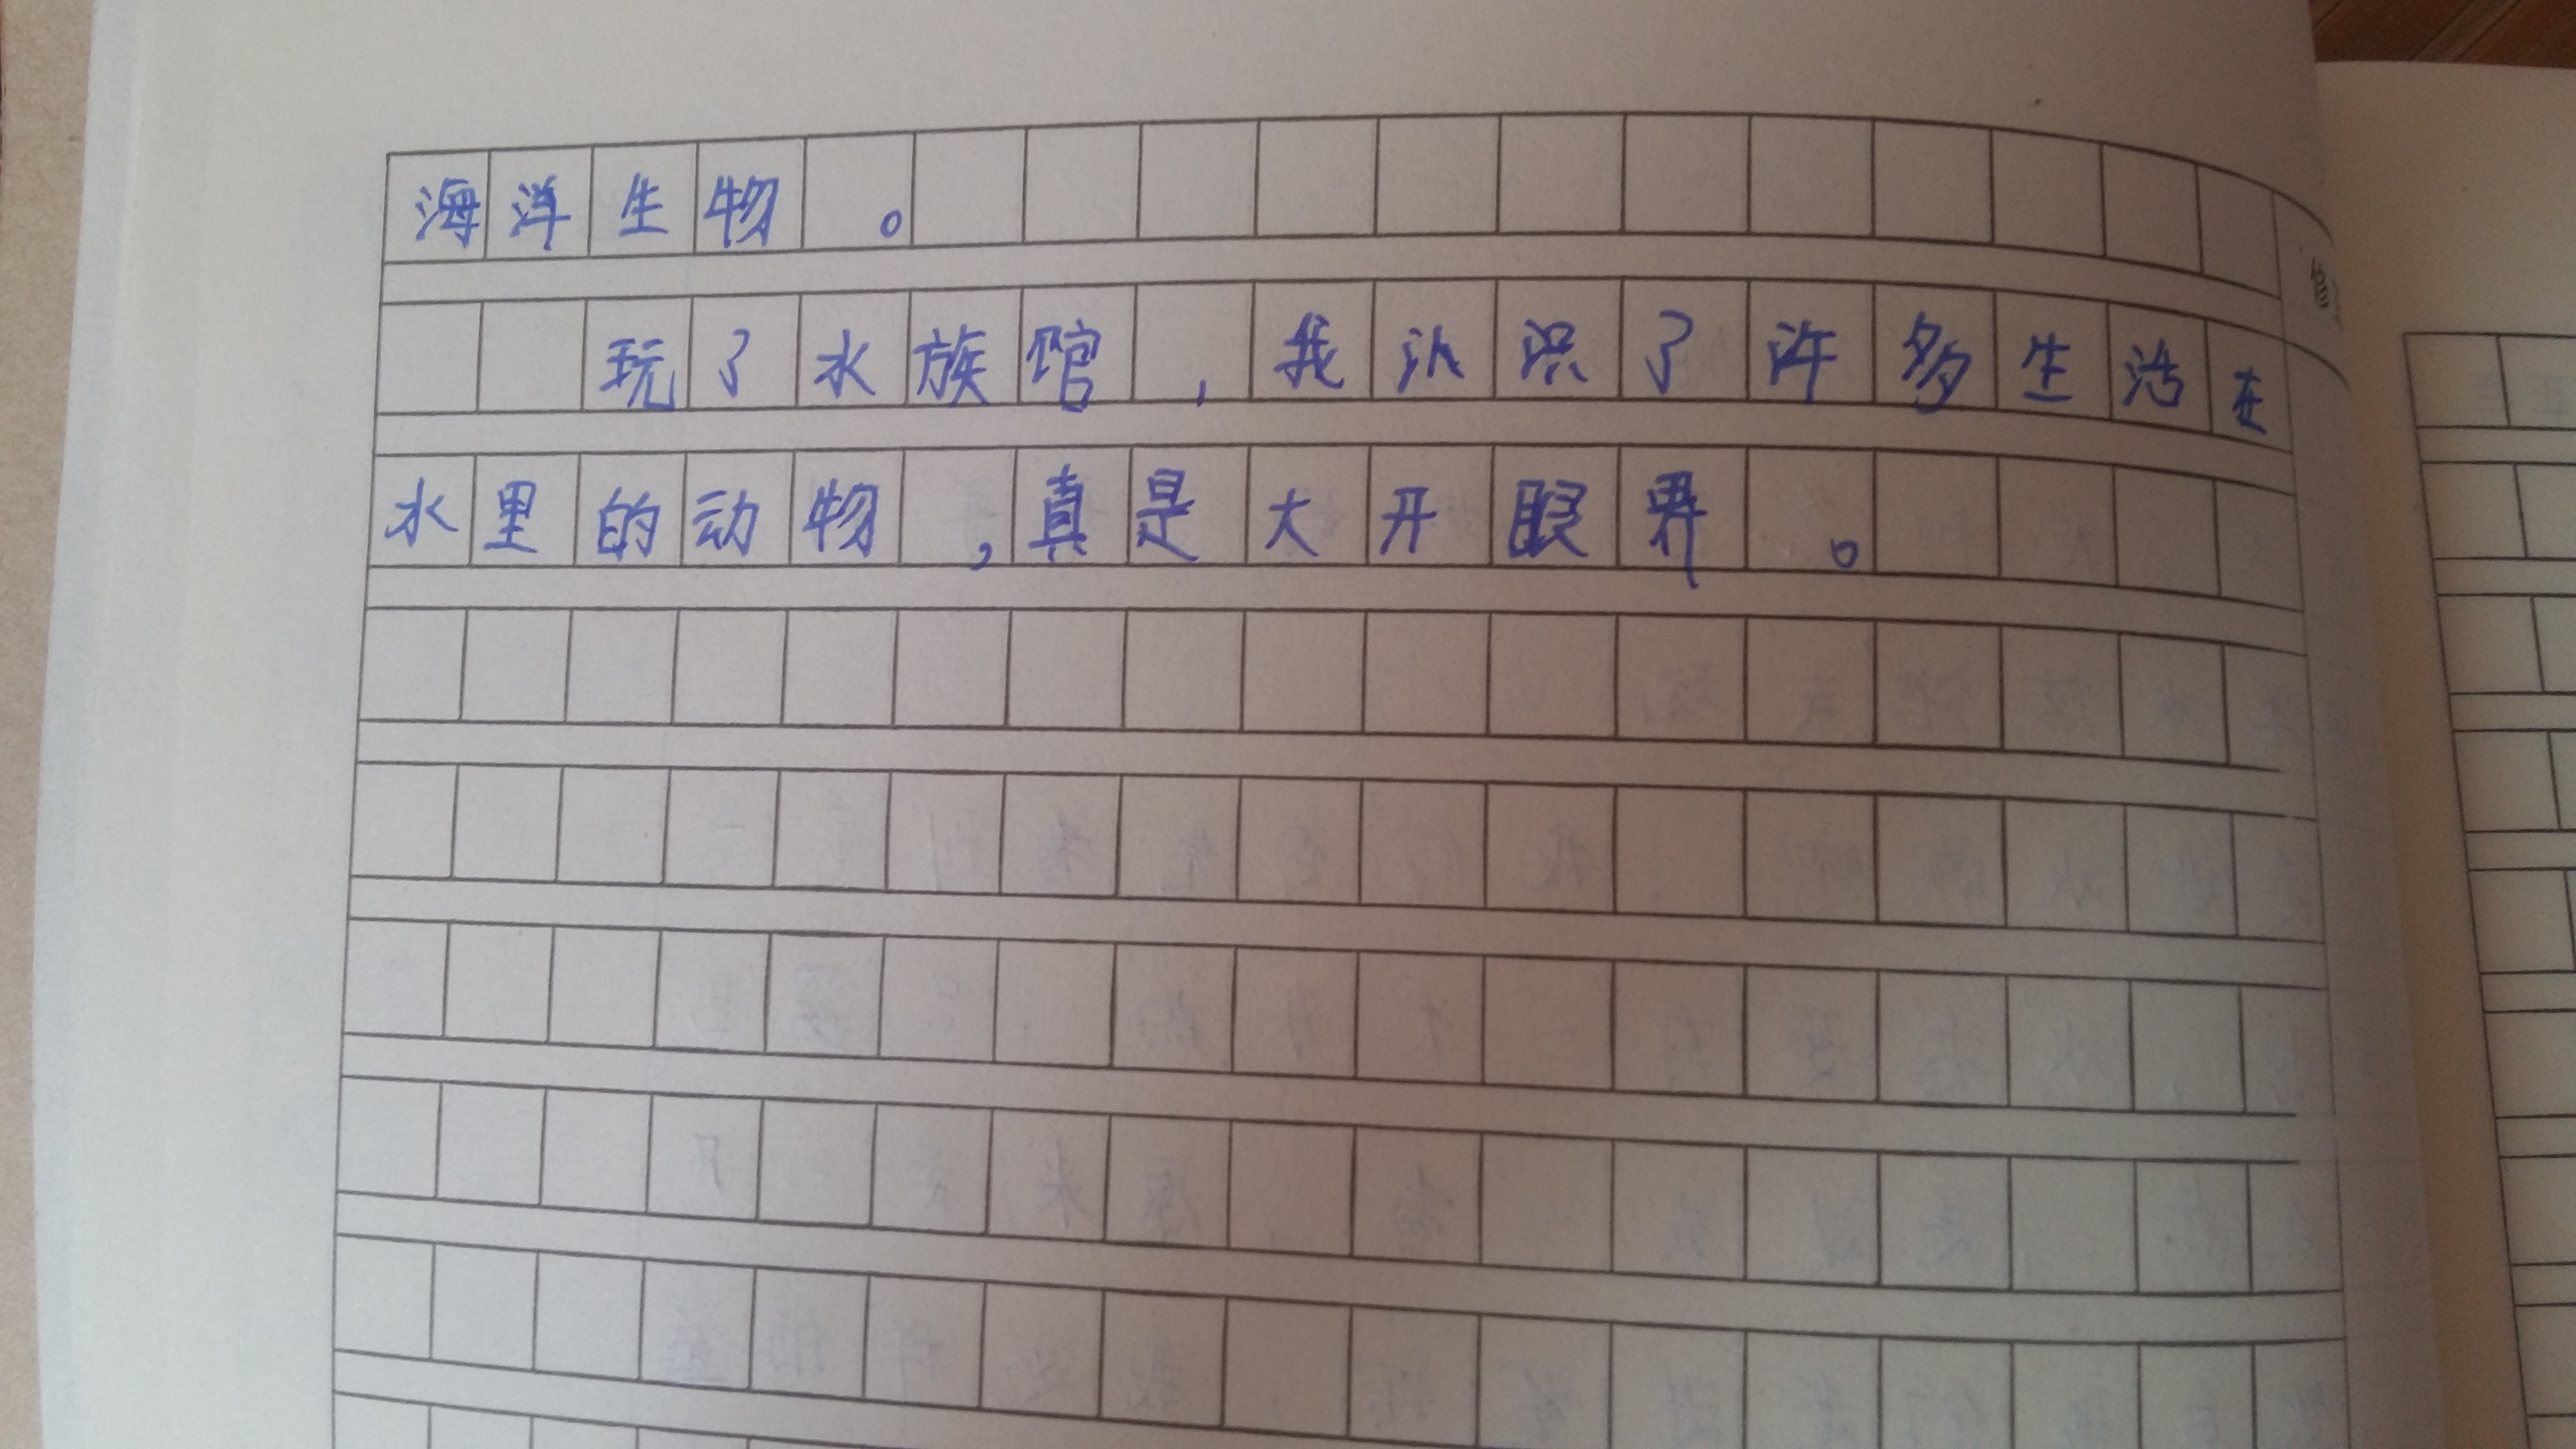 海洋生物。
玩了水族馆,我认识了许多生活在
水里的动物,真是大开眼界。